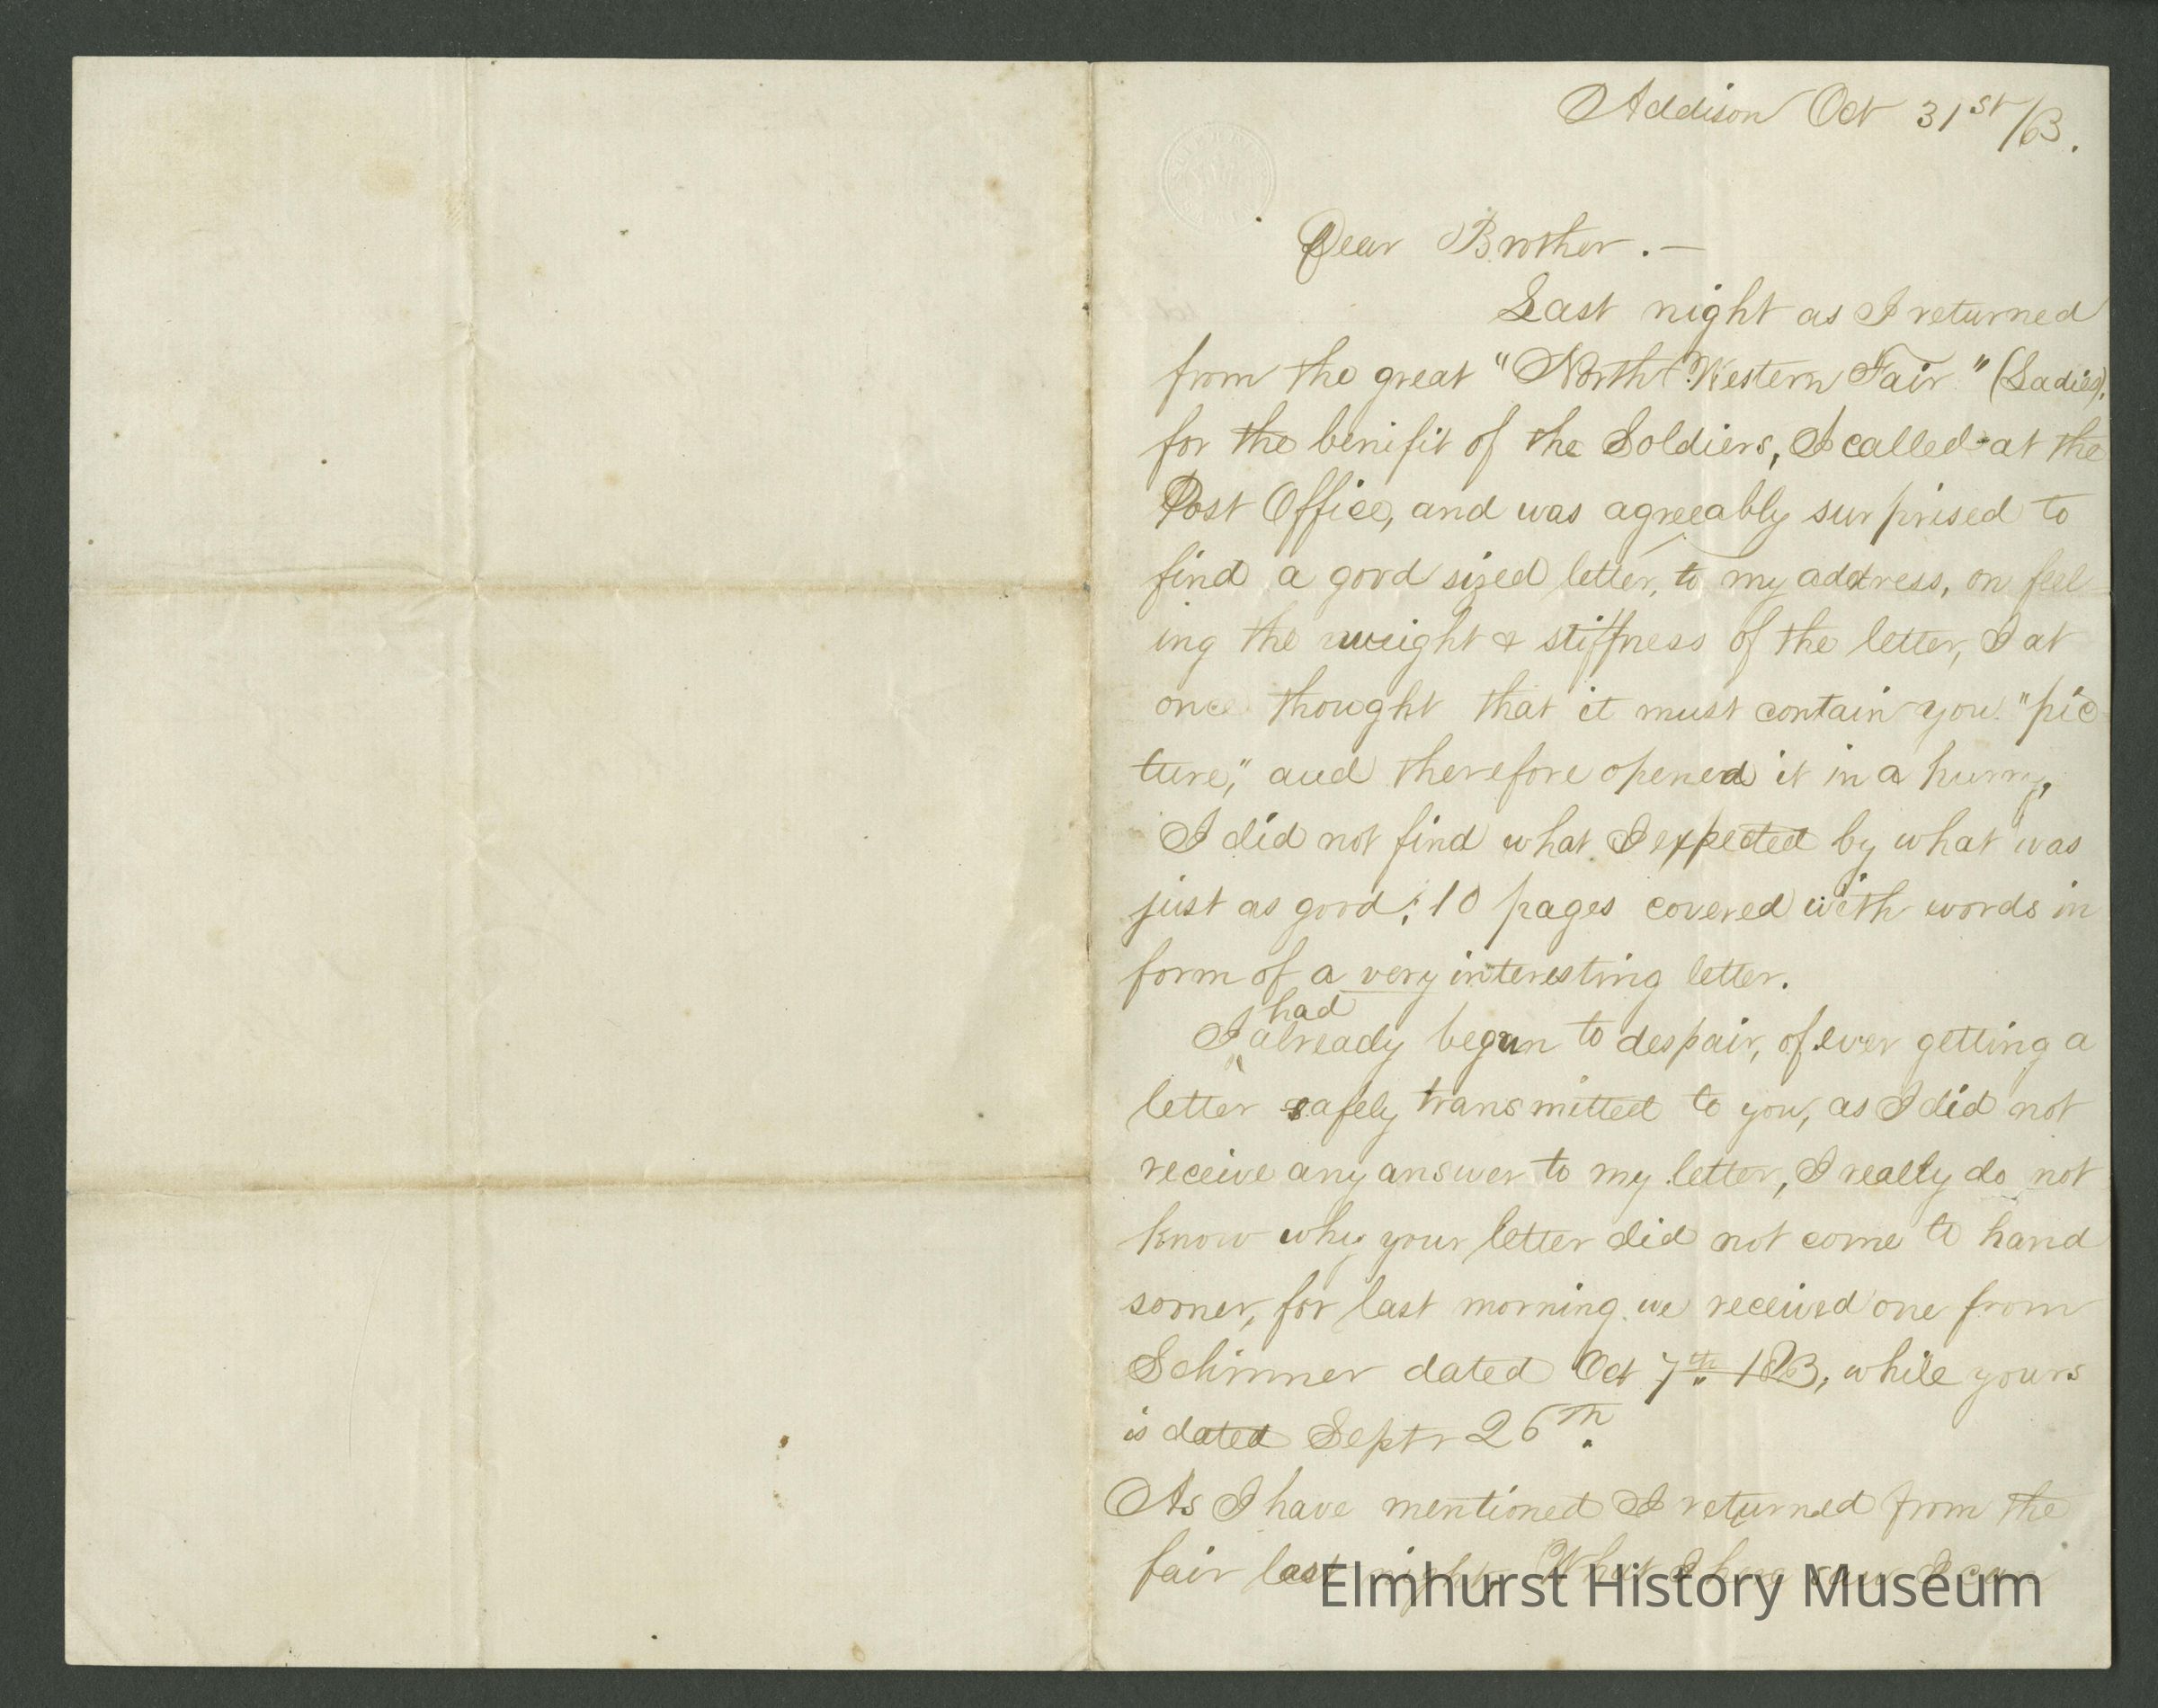 Addison Oct 31st/63.
Dear Brother. —
Last night as I returned
from the great "North Western Fair" (Ladies),
for the benifit of the Soldiers, I called at the
Post Office, and was agreeably surprised to
find a good sized letter, to my address, on feel-
ing the weight & stiffness of the letter, I at
once thought that it must contain you "pic
ture," and therefore opened it in a hurry,
I did not find what I expected by what was
just as good; 10 pages covered with words in
form of a very interesting letter.
had
I already begun to despair, of ever getting a
letter safely transmitted to you, as I did not
receive any answer to my letter, I really do not
know why your letter did not come to hand
sooner, for last morning we received one from
Schinner dated Oct 7th 1863, while yours
is dated Septr 26th.
As I have mentioned I returned from the
fair last night. What I
Elmhurst History Museum